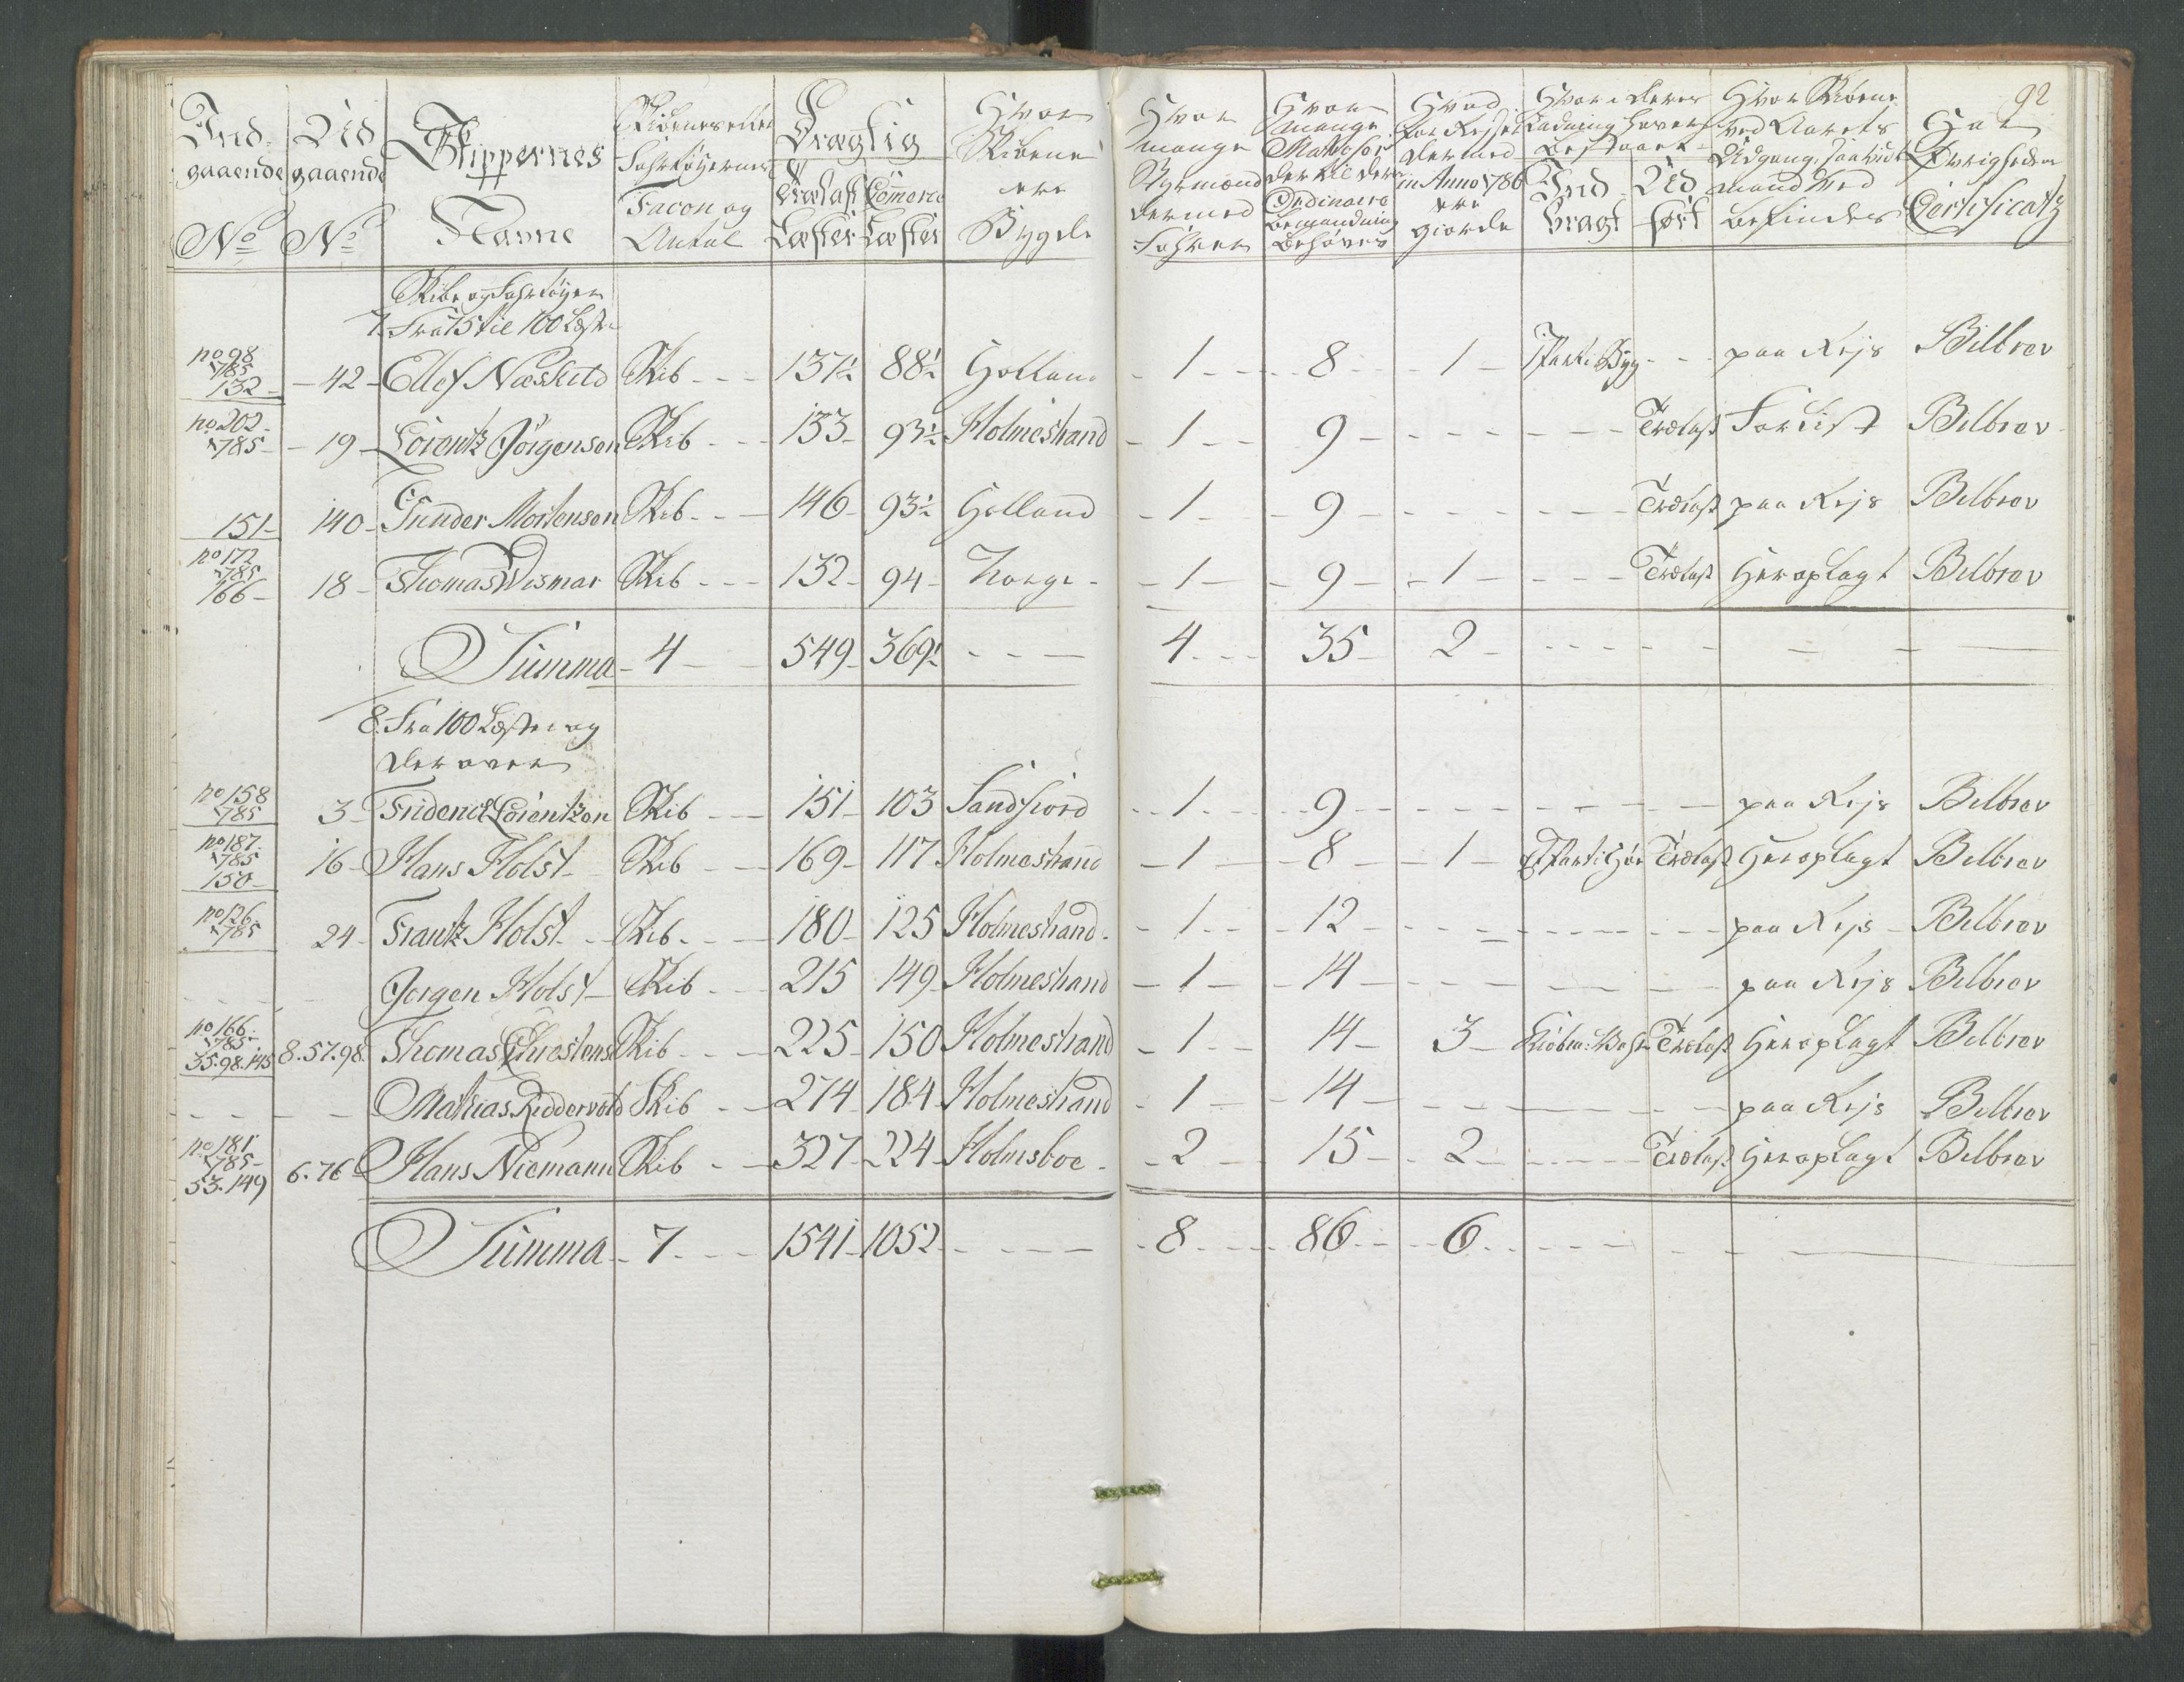 92
Ind-gaaende No
Ud gaaende No
Skippernes Navne
Skibenes eller Fahrtøyernes Facon og Antal
Drægtig
Trælast Læster
Comerce Læster
Hvor Skibene ere Bygde
Hvor mange Styrmænd dermed Fahrer
Hvor mange Matroser der til deres Ordinaire bemanding behøves
Hvad for Rejser dermed in Anno 1786 ere giorde
Hvori deres Ladning haver bestaaet
Ind bragt
Ud ført
Hvor Skibene ved Aarets Udgang, saavidt mand veed befindes
Har Øvrighedens Certificatz
Skibe og Fahrtøyer
7. Fra 75 til 100 Læster
no 98 1785 132 - 42 - Ellef Næskild Skib - - - 137½ 88½ Holland - 1 - - - 8 - - 1 - 1 Parti Byg - - paa Rejs Bilbrev
no 202 1785 - 19 - Lorentz Jørgensen Skib - - - 133 - 93½ Holmestrand - 1 - - 9 - - - - - - - Trælast Forlist Bilbrev
151 - 140 - Gunder Mortensen Skib - - - 146 - 93½ Holland - 1 - - 9 - - - - - - - Trælast paa Rejs Bilbrev
no 172 1785 166 - 18 - Thomas Wismar Skib - - - 132 - 94 - Norge - - 1 - - 9 - - 1 - - - - Trælast Her oplagt Bilbrev
Summa - 4 - - 549 - 369½ - - - 4 - - - 35 - 2 - - - - - - -
8. Fra 100 Læster og
derover
no 158 1785 3 - Friderich Lorentzen Skib - - 151 - 103 Sandfiord - - 1 - - - 9 - - - - - - - - paa Rejs Bilbrev
no 187 1785 150 - 16 - Hans Holst - Skib - - 169 - 117 Holmestrand - 1 - - 8 - - 1 - Et Parti Hør Trælast Her oplagt Bilbrev
no 126 1785 24 - Frantz Holst - - Skib - - - 180 - 125 Holmestrand - - 1 - - - 12 - - - - - - - paa Rejs - Bilbrev
- - - - Jørgen Holst - Skib - - - 215 149 - Holmestrand - 1 - - 14 - - - - - - - paa Rejs Bilbrev
no 166 1785 35. 98. 145 8. 57. 98. Thomas Christens Skib - - - 225 - 150 Holmestrand - 1 - - 14 - 3 - Trælast Her oplagt Bilbrev
- - - - - Mathias Riddervold Skib - - - 274 - 184 - Holmestrand - 1 - - 14 - - - - - - - paa Rejs Bilbrev
no 181. 1785 - 53. 149 6. 76 - Hans Niemann Skib - - - 327 - 224 - Holmsboe - - 2 - - 15 - - 2 - - - - Trælast Her oplagt Bilbrev
Summa - 7 - - - 1541 - 1052 - - - - - 8 - - - 86 - - - 6 - - - - - - -